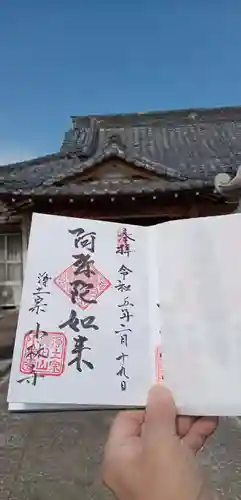 奉拝 令和五年二月十九日
阿弥陀如来
浄土宗